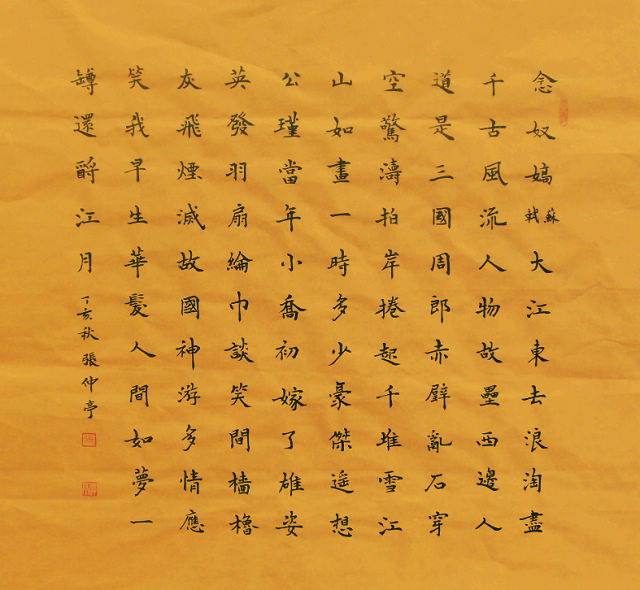 念奴嬌 蘇軾 大江東去浪淘盡
千古風流人物故壘西邊人
道是三國周郎赤壁亂石穿
空驚濤拍岸捲起千堆雪江
山如畫一時多少豪傑遙想
公瑾當年小喬初嫁了雄姿
英發羽扇綸巾談笑間檣櫓
灰飛煙滅故國神游多情應
笑我早生華髮人間如夢一
罇還酹江月 丁亥秋張仲亭